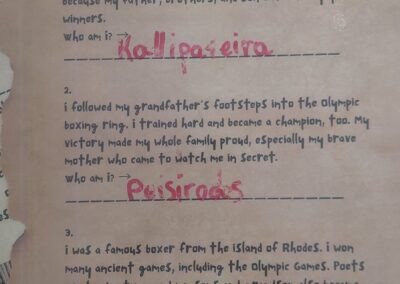 because my father, brothers, and
winners.
Who am i? → Kallipateira
2.
i followed my grandfather's footsteps into the Olympic
boxing ring. i trained hard and became a champion, too. My
victory made my whole family proud, especially my brave
mother who came to watch me in secret.
Who am i? → Peisirodos
3.
i was a famous boxer from the island of Rhodes. i won
many ancient games, including the Olympic Games. Poets